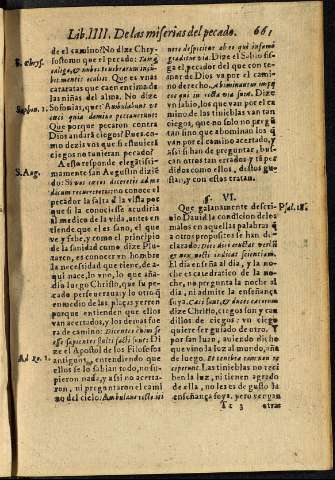 Lib. IIII. De las miserias del pecado. 661
de el camino? No dize Chry-
S. Chrys.
sostomo que el pecado:
mentes ocalis: Que es vnas
cataratas que caen entimada
las niñas del alma. No dize
Sophon. 1.
Sofonias, que: Ambulabunt vt
caci quia domino peccauerunt:
Que porque pecaron contra
Dios andará ciegos? Pues co-
mo dezis vos que si estuuierá
ciegos no tuuieran pecado?
A esto responde elegátissi-
S. Aug.
mamente san Augustin dizié
do: Si vos cæcos diceretis ad me
dicum recurreretis: no conoce el
pecador la falta d la vista por
que si la conociesse acudiria
al medico de la vida, antes en
tiende, que el es sano, el que
ve y sabe, y como el principio
de la sanidad como dize Plu-
tareo, es conocer vn hombre
la necesidad que tiene, de a-
qui nace, lo vno, lo que aña-
dio luego Christo, que su pe-
cado perseueraua: y lo otro q̃
en medio de las plaças yerren
porque entienden que ellos
van acertados, y los demas fue
ra de camino: Dicentes enim se
esse sapientes stulti facti sunt: Di
Ad Ro. 1.
ze el Apostol de los Filosofos
antiguos, entendiendo que
ellos se lo sabian todo, no su-
pieron nada, y assi no acerta-
ron, ni preguntaron el cami
no del cielo. Ambulaue recta iti
nere despicitur ab eo qui infame
graditur via. Dize el Sabio sies-
ga el pecador del que con te-
mor de Dios va por el cami-
no derecho, Abominantur impij
eos qui in recta via sunt. Dize
vn prouerbio, los que van por
el ca mino de las tinieblas van tan
ciegos, que no solo no pregũ
tan sino que abominan los q̃
van por el camino acertado, y
assi si han de preguntar, bus-
can otros tan errados y tã per
didos como ellos, dessos gus
stan, y con estos tratan.
§. VI.
Que galanamente descri- Psal. 18.
uio Dauid la condicion de los
malos en aquellas palabras q̃
a otros propositos se han de-
clarado: Dies diei eructat verbũ
& nox nocti indicat scientiam.
El dia enseña al dia, y la no-
che es catedratico de la no-
che, no pregunta la noche al
dia, ni admite la enseñança
suya. Cæci sunt, & duces cæcorum
dize Christo, ciegos son y cau
dillos de ciegos: vn ciego
quiere ser guiado de otro. Y
por san Iuan, auiendo dicho
que vino la luz al mundo, aña
de luego. Et tenebræ eam non cõ
ceperunt. Las tinieblas no reci
ben la luz, ni tienen agrado
de ella, no les es de gusto la
enseñança suya, pero vengan
Tt 3 otras